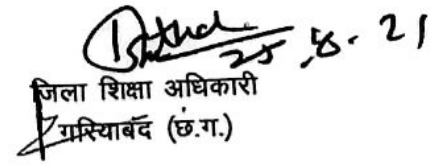 25.8.21
जिला शिक्षा अधिकारी
गरियाबंद (छ.ग.)